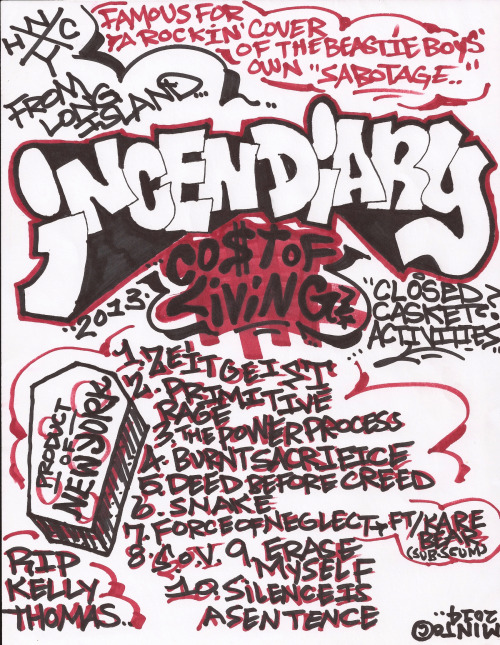 NY
HC
FAMOUS FOR
YA ROCKIN' COVER
OF THE BEASTIE BOYS'
OWN "SABOTAGE.."
FROM
LONG
ISLAND...
INCENDIARY
CO$T OF
LIVING
..2013.
"CLOSED
CASKET
ACTIVITIES"
PRODUCT
OF
NEW YORK
1. ZEITGEIST
2. PRIMITIVE
RAGE
3. THE POWER PROCESS
4. BURNT SACRIFICE
5. DEED BEFORE CREED
6. SNAKE
7. FORCE OF NEGLECT FT/ KARE
BEAR
(SUBSCUM)
8. S.O.V. 9. ERASE
MYSELF
10. SILENCE IS
A SENTENCE
RIP
KELLY
THOMAS..
2014
MINTO©